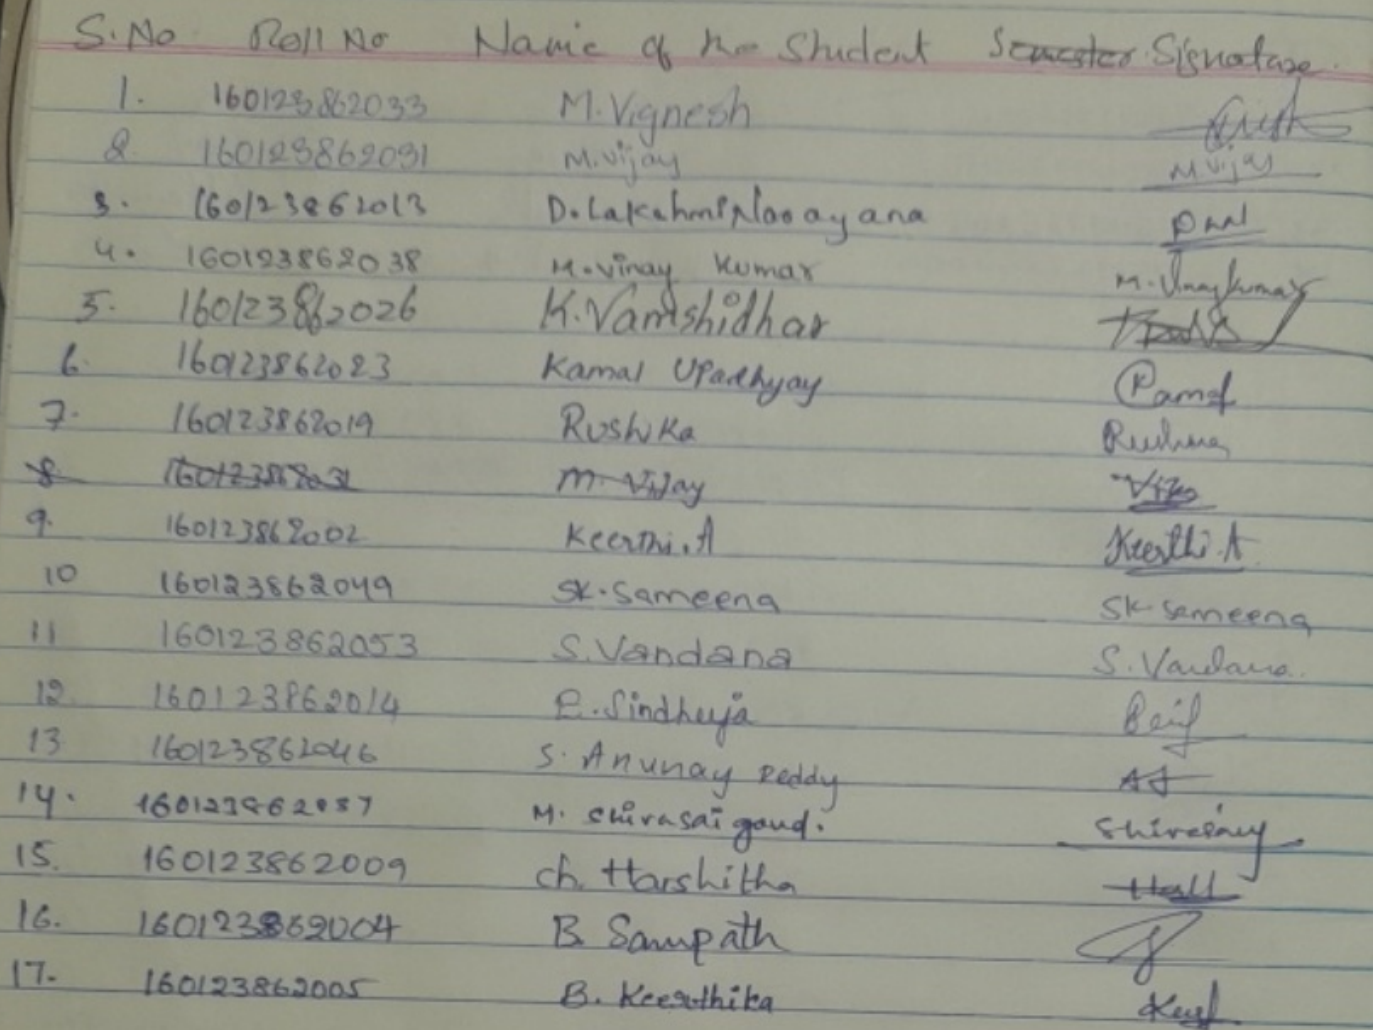 S.No Roll No Name of the Student Semester Signature
1. 160123862033 M.Vignesh
2. 160123862031 M.Vijay M Vijay
3. 160123862013 D.LakshmiNarayana
4. 160123862038 M.Vinay Kumar M.Vinaykumar
5. 160123862026 K.Vamshidhar
6. 160123862023 Kamal Upadhyay Kamal
7. 160123862019 Rushika
8. 160123862031 M.Vijay
9. 160123862002 Keerthi.A Keerthi.A
10 160123862049 SK.Sameena SK Sameena
11 160123862053 S.Vandana S.Vandana.
12. 160123862014 E.Sindhuja
13 160123862046 S. Anunay Reddy
14. 160123862037 M. Shivasai goud.
15. 160123862009 Ch. Harshitha
16. 160123862004 B Sampath
17. 160123862005 B. Keerthika